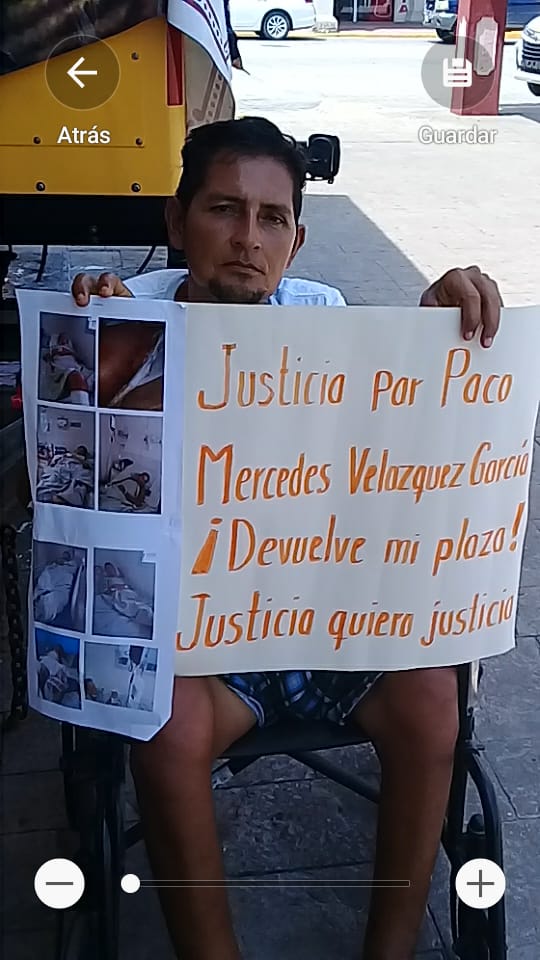 Atrás
Guardar
Justicia por Paco
Mercedes Velazquez García
¡Devuelve mi plaza!
Justicia quiero justicia